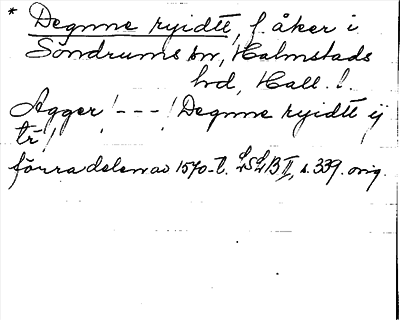 * Degnne ryidtt, f. åker i
Söndrums sn, Halmstads
hd, Hall. l.
Agger! --- ! Degnne ryidtt ij
tr!
förra delen av 1570-t. LSLB II, s. 339. orig.